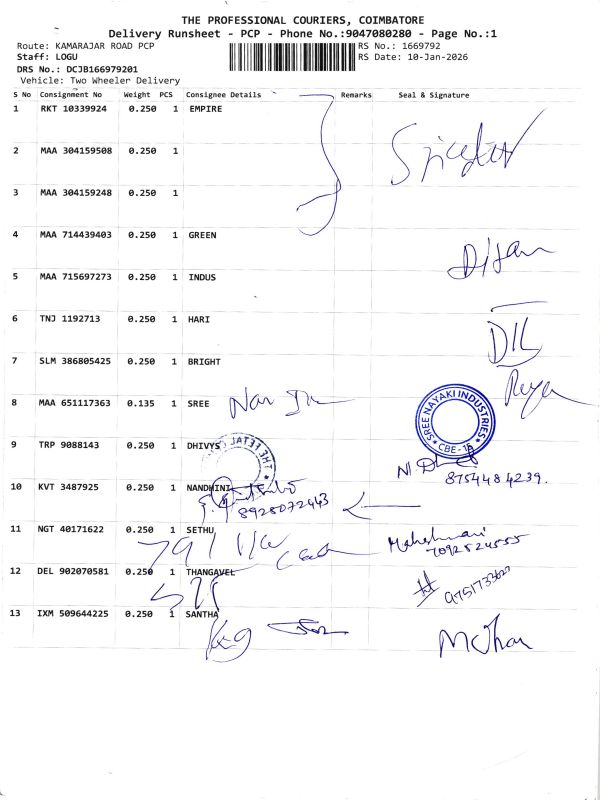 THE PROFESSIONAL COURIERS, COIMBATORE
Delivery Runsheet - PCP - Phone No.:9047080280 - Page No.:1
Route: KAMARAJAR ROAD PCP
Staff: LOGU
DRS No.: DCJB166979201
Vehicle: Two Wheeler Delivery
RS No.: 1669792
RS Date: 10-Jan-2026
S No Consignment No Weight PCS Consignee Details Remarks Seal & Signature
1 RKT 10339924 0.250 1 EMPIRE
2 MAA 304159508 0.250 1
3 MAA 304159248 0.250 1
4 MAA 714439403 0.250 1 GREEN
5 MAA 715697273 0.250 1 INDUS
6 TNJ 1192713 0.250 1 HARI
7 SLM 386805425 0.250 1 BRIGHT
8 MAA 651117363 0.135 1 SREE
SREE NAYAKI INDUSTRIES
9 TRP 9088143 0.250 1 DHIVYS
8754484239.
10 KVT 3487925 0.250 1 NANDHINI
8925072443
11 NGT 40171622 0.250 1 SETHU
Maheshwari
7092524555
12 DEL 902070581 0.250 1 THANGAVEL
13 IXM 509644225 0.250 1 SANTHA